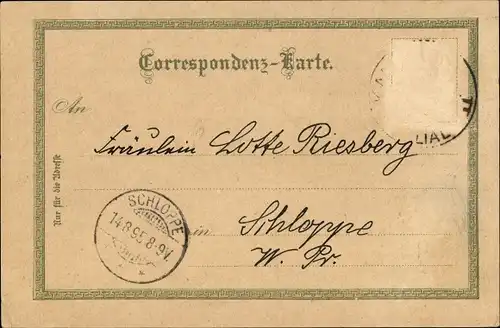 Correspondenz-Karte.
An
Fräulein Lotte Riesberg
in Schloppe
W. Pr.
Nur für die Adresse
SCHLOPPE
14.8.95.8-9V.